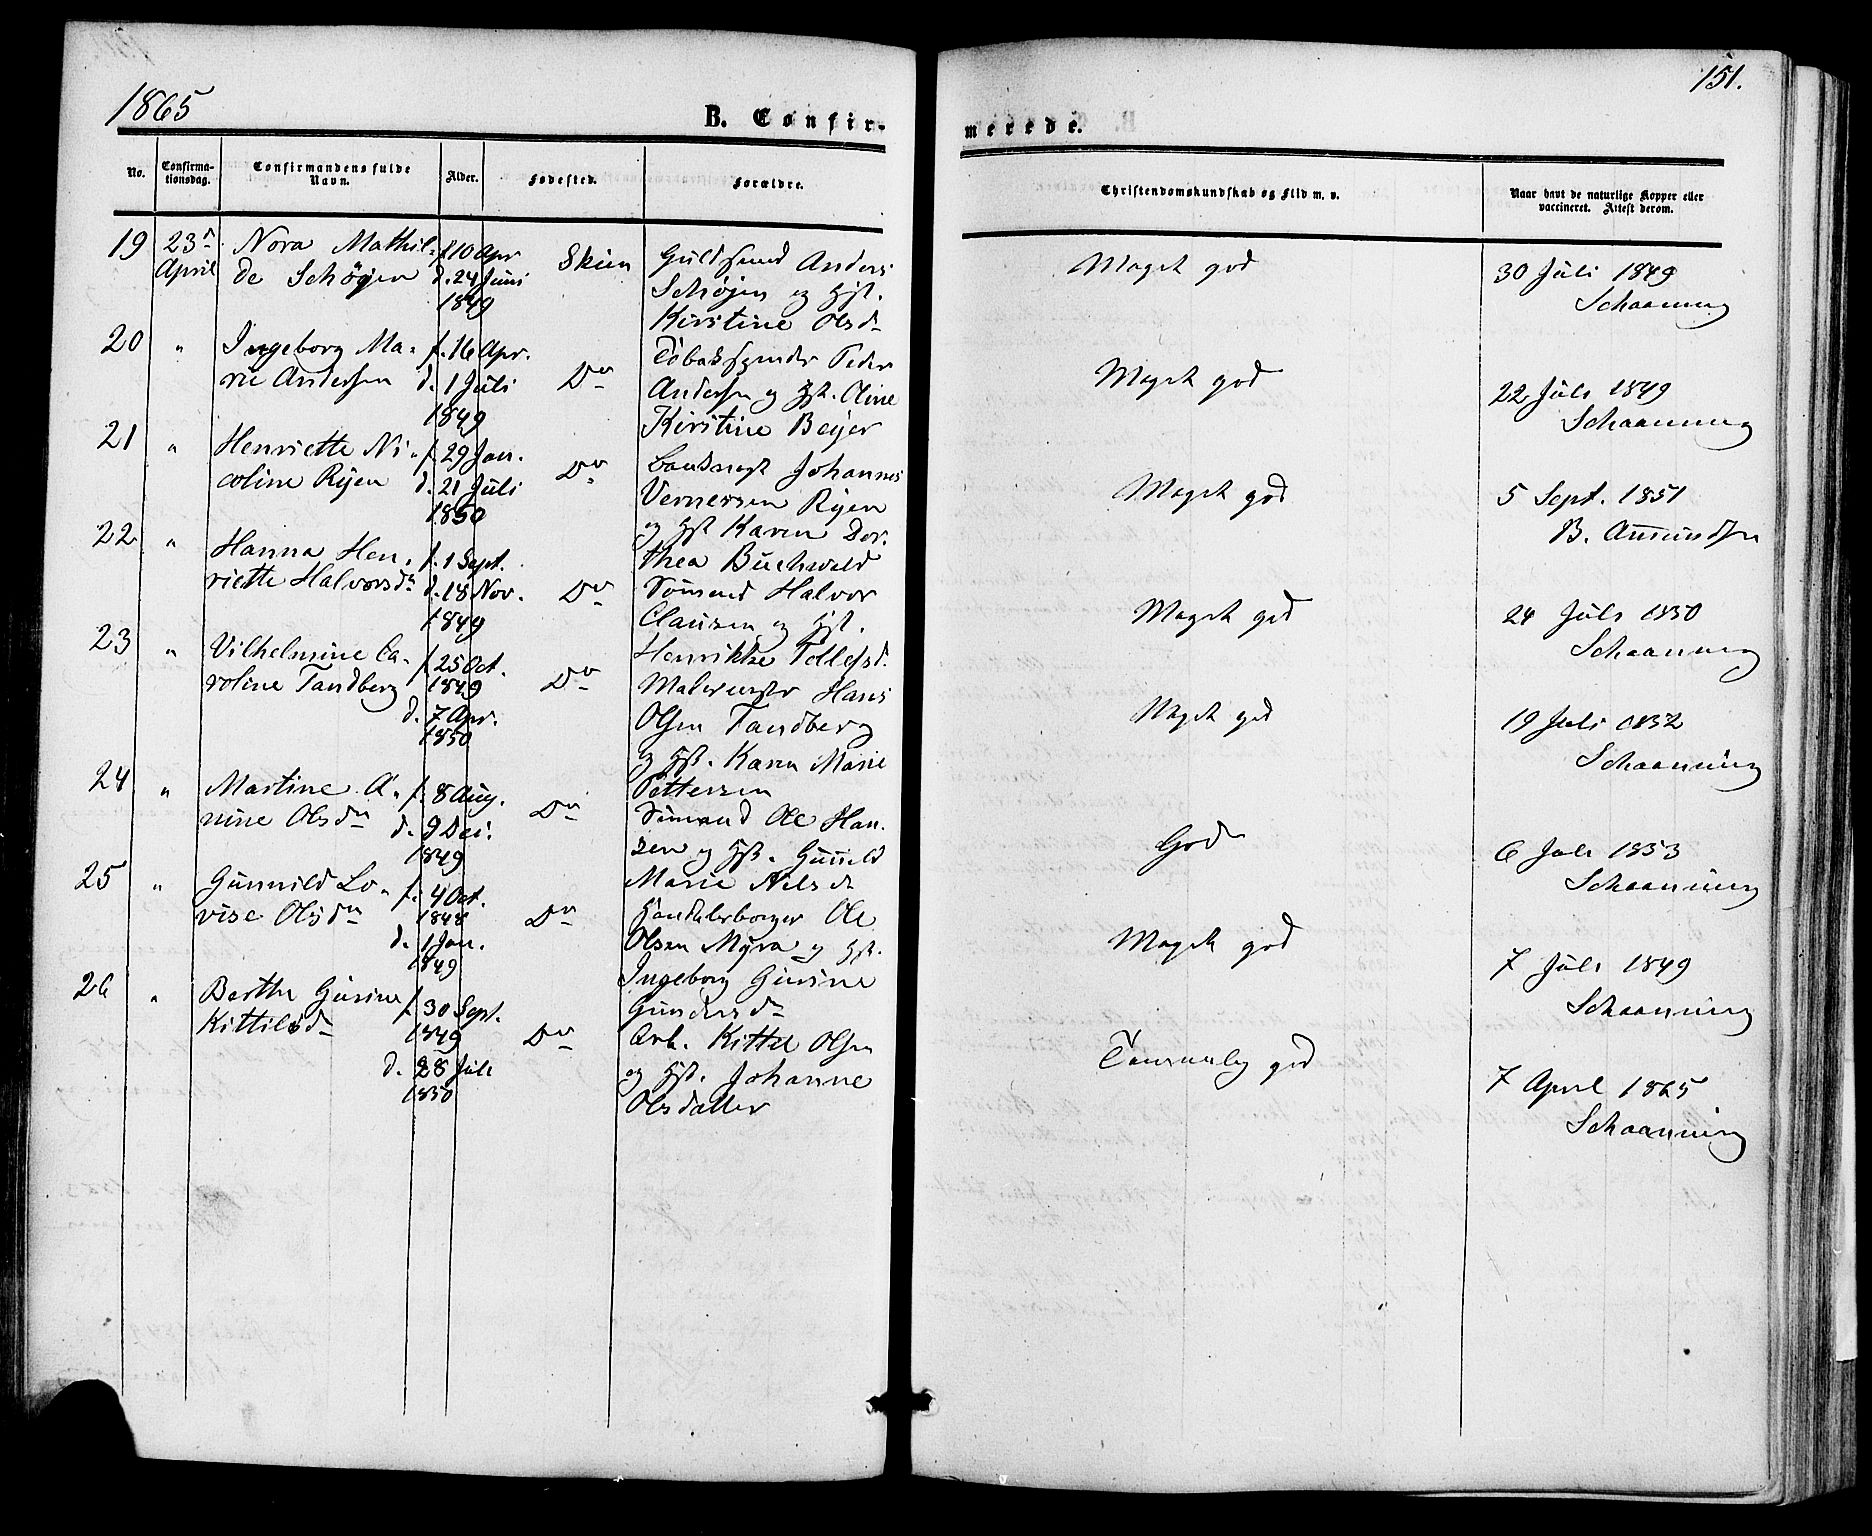 1865
B. Confir-
No.
Confirma-
tionsdag.
Confirmandens fulde
Navn.
Alder.
Fødested.
Forældre.
19
23
April
Nora Mathil-
de Schøyen
f. 10 Apr
d. 24 Juni
1849
Skien
Guldsmed Anders
Schøjen og Hst.
Kirstine Olsd
20
"
Ingeborg Ma-
rie Andersen
f. 16 Apr.
d. 1 Juli
1849
Do
Tobaksspinder Peder
Andersen og Hst. Oline
Kirstine Beyer
21
"
Henriette Ni-
coline Ryen
f. 29 Jan.
d. 21 Juli
1850
Do
Johannes
Vernersen Ryen
og Hst Karen Dor.
thea Buchwald
22
"
Hanna Hen-
riette Halvorsd
f. 1 Sept.
d. 18 Nov.
1849
Do
Sømand Halvor
Clausen og Hst.
Henrikke Tellefsd.
23
"
Vilhelmine Ca-
roline Tandberg
f. 25 Oct.
1849
d. 7 Apr.
1850
Do
Malermester Hans
Olsen Tandberg
og Hst. Karen Marie
Pettersen
24
"
Martine A-
nine Olsdn
f. 8 Aug.
d. 9 Dec.
1849
Do
Sømand Ole Han-
sen og Hst. Gunild
Marie Nelsd
25
"
Gunnild Lo-
vise Olsdn
f. 4 Oct.
1848
d. 1 Jan.
1849
Do
Handelsborger Ole
Olsen Myra og Hst.
Ingeborg Gurine
Gundersd
26
"
Berthe Gurine
Kittilsd
f. 30 Sept.
1849
d. 28 Juli
1850
Do
Arb. Kittel Olsen
og Hst. Johanne
Olsdatter
151.
merede.
Christendomskundskab og Flid m. v.
Naar havt de naturlige Kopper eller
vaccineret. Attest derom.
Meget god
30 Juli 1849
Schaanning
Meget god
22 Juli 1849
Schaanning
Meget god
5 Sept. 1851
B. Amundsen
Meget god
24 Juli 1850
Schaanning
Meget god
19 Juli 1852
Schaanning
God
6 Juli 1853
Schaanning
Meget god
7 Juli 1849
Schaanning
Temmelig god
7 April 1865
Schaanning